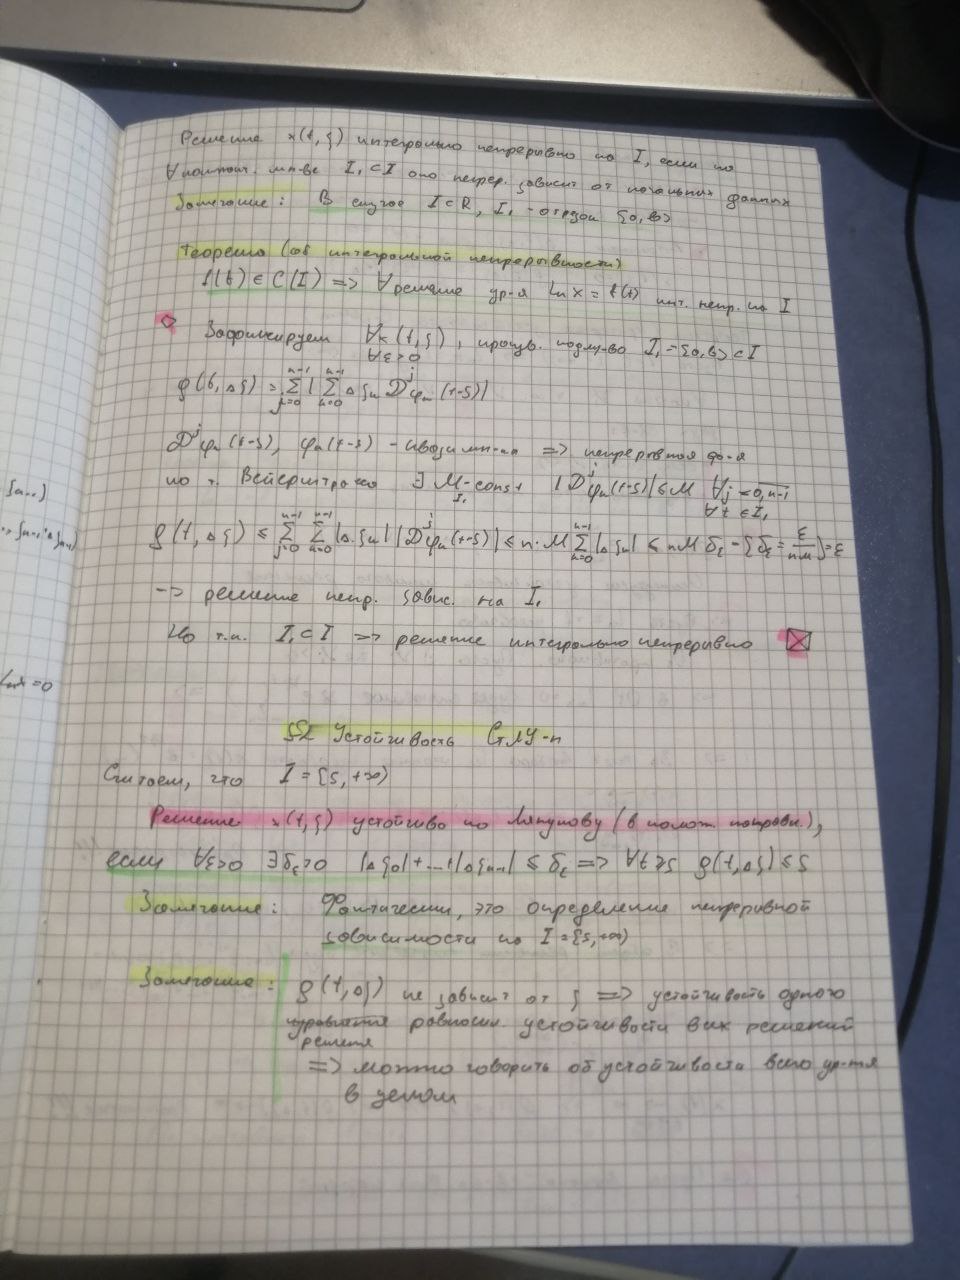 Решение x(t,ξ) интегрально непрерывно на I, если на
∀ компакт. мн-ве I₁ ⊂ I оно непрер. зависит от начальных данных
Замечание: В случае I ⊂ R, I₁ - отрезок [a,b]
Теорема (об интегральной непрерывности)
f(t) ∈ C(I) => ∀ решение ур-я Lₙx = f(t) инт. непр. на I
Зафиксируем ∀x(t,ξ), произв. подмн-во I₁ = [a,b] ⊂ I
∀ε>0
ρ(t,Δξ) = Σ_{j=0}^{n-1} |Σ_{k=0}^{n-1} Δξₖ Dʲφₖ(t-s)|
Dʲφₖ(t-s), φₖ(t-s) - => непрерывная ф-я
по т. Вейерштрасса ∃ M-const |Dʲφₖ(t-s)| ≤ M ∀j = 0,n-1
I₁ ∀t ∈ I₁
ρ(t,Δξ) ≤ Σ_{j=0}^{n-1} Σ_{k=0}^{n-1} |Δξₖ| |Dʲφₖ(t-s)| ≤ n·M Σ_{k=0}^{n-1} |Δξₖ| ≤ nM δ_ε = [δ_ε = ε/nM] = ε
=> решение непр. завис. на I₁
Но т.к. I₁ ⊂ I => решение интегрально непрерывно
Устойчивость СтЛУ-n
Считаем, что I = [s,+∞)
Решение x(t,ξ) устойчиво по Ляпунову (в полож. направл.),
если ∀ε>0 ∃δ_ε>0 |Δξ₀|+...+|Δξₙ₋₁| ≤ δ_ε => ∀t≥s ρ(t,Δξ) ≤ s
Замечание: Фактически, это определение непрерывной
зависимости на I = [s,+∞)
Замечание: ρ(t,Δξ) не зависит от ξ => устойчивость одного
уравнения равносил. устойчивости всех решений
решения
=> можно говорить об устойчивости всего ур-ия
в целом
Lₙx = 0